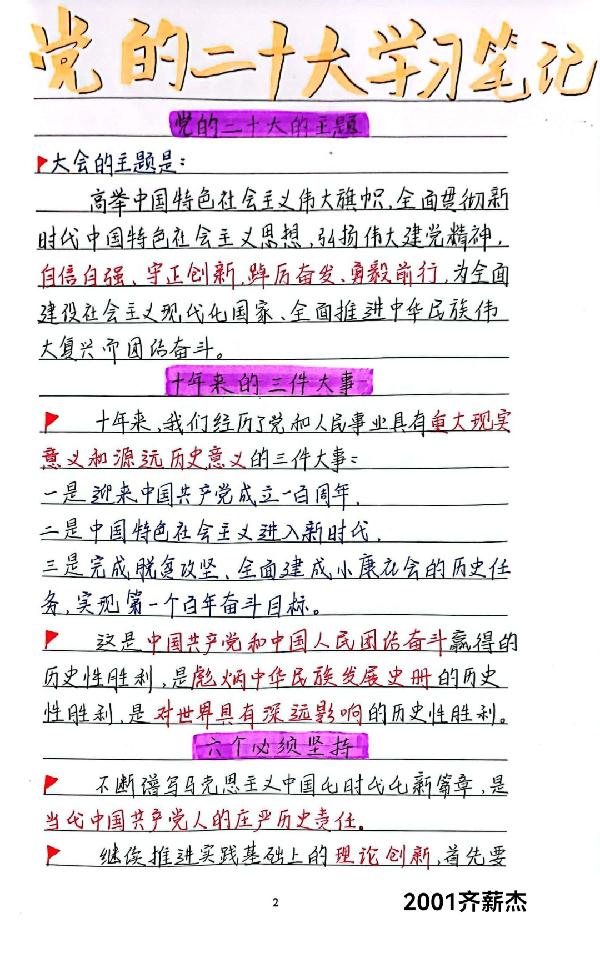 党的二十大学习笔记
党的二十大的主题
大会的主题是：
高举中国特色社会主义伟大旗帜，全面贯彻新
时代中国特色社会主义思想，弘扬伟大建党精神，
自信自强、守正创新，踔厉奋发、勇毅前行，为全面
建设社会主义现代化国家、全面推进中华民族伟
大复兴而团结奋斗。
十年来的三件大事
十年来，我们经历了党和人民事业具有重大现实
意义和源远历史意义的三件大事：
一是迎来中国共产党成立一百周年，
二是中国特色社会主义进入新时代，
三是完成脱贫攻坚、全面建成小康社会的历史任
务，实现第一个百年奋斗目标。
这是中国共产党和中国人民团结奋斗赢得的
历史性胜利，是彪炳中华民族发展史册的历史
性胜利，是对世界具有深远影响的历史性胜利。
六个必须坚持
不断谱写马克思主义中国化时代化新篇章，是
当代中国共产党人的庄严历史责任。
继续推进实践基础上的理论创新，首先要
2
2001齐薪杰